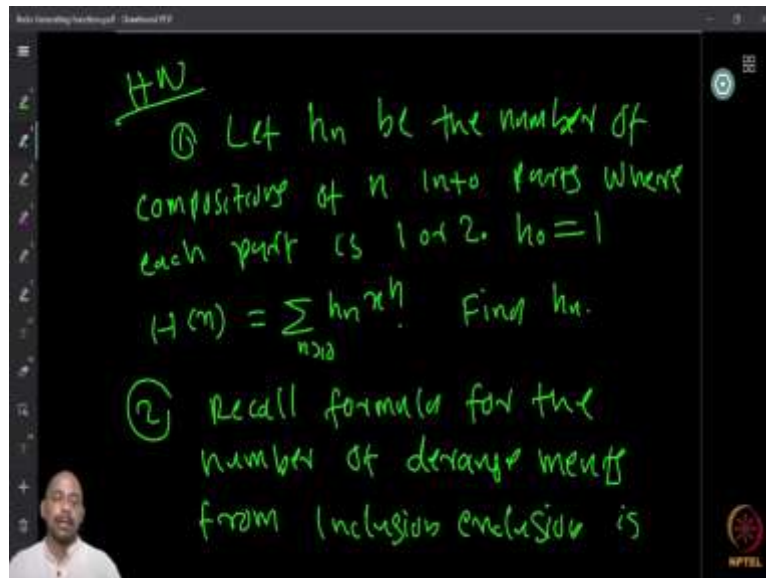 HW
① Let hn be the number of
compositions of n into parts where
each part is 1 or 2. h₀ = 1
H(x) = ∑ hn xⁿ. Find hn.
n≥0
② Recall formula for the
number of derangements
from Inclusion exclusion is
NPTEL